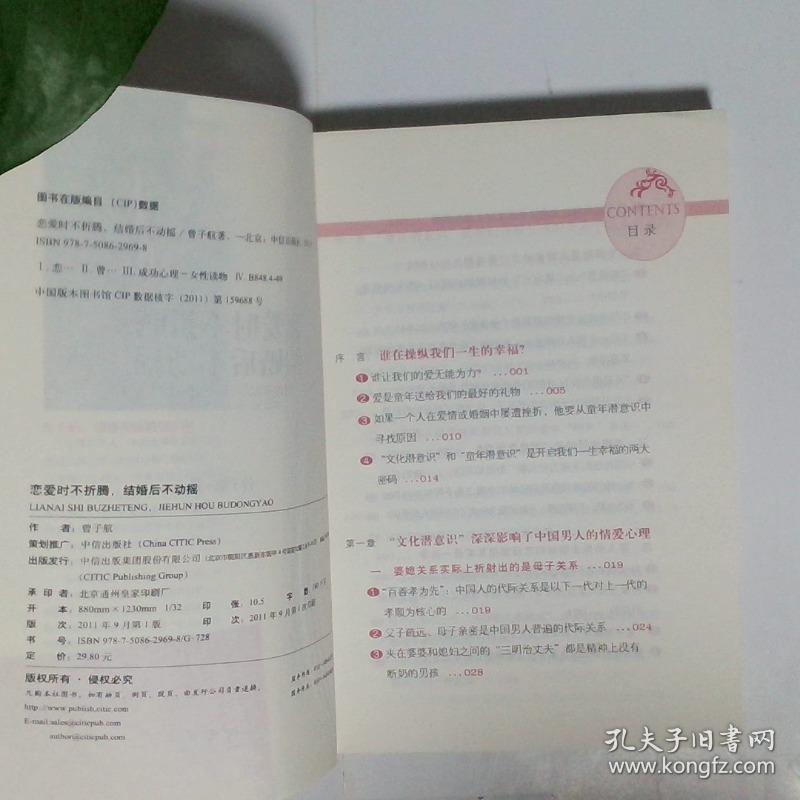 图书在版编目 (CIP) 数据
恋爱时不折腾，结婚后不动摇 / 曾子航著. —北京：中信出版社
ISBN 978-7-5086-2969-8
Ⅰ. 恋… Ⅱ. 曾… Ⅲ. 成功心理－女性读物 Ⅳ. B848.4-49
中国版本图书馆 CIP 数据核字（2011）第 159688 号
恋爱时不折腾，结婚后不动摇
LIANAI SHI BUZHETENG, JIEHUN HOU BUDONGYAO
作 者：曾子航
策划推广：中信出版社 (China CITIC Press)
出版发行：中信出版集团股份有限公司
(CITIC Publishing Group)
承 印 者：北京通州皇家印刷厂
开 本：880mm×1230mm 1/32 印 张：10.5 字 数：
版 次：2011年9月第1版 印 次：2011年9月第
书 号：ISBN 978-7-5086-2969-8/G·728
定 价：29.80 元
版权所有·侵权必究
凡购本社图书，如有缺页、倒页、脱页，由发行公司负责退换。
http://www.publish.citic.com
E-mail:sales@citicpub.com
author@citicpub.com
CONTENTS
目录
序 言 谁在操纵我们一生的幸福？
1 谁让我们的爱无能为力？ …001
2 爱是童年送给我们的最好的礼物 …005
3 如果一个人在爱情或婚姻中屡遭挫折，他要从童年潜意识中
寻找原因 …010
4 “文化潜意识”和“童年潜意识”是开启我们一生幸福的两大
密码 …014
第一章 “文化潜意识”深深影响了中国男人的情爱心理
一 婆媳关系实际上折射出的是母子关系 …019
1 “百善孝为先”：中国人的代际关系是以下一代对上一代的
孝顺为核心的 …019
2 父子疏远、母子亲密是中国男人普遍的代际关系 …024
3 夹在婆婆和媳妇之间的“三明治丈夫”都是精神上没有
断奶的男孩 …028
孔夫子旧书网
www.kongfz.com